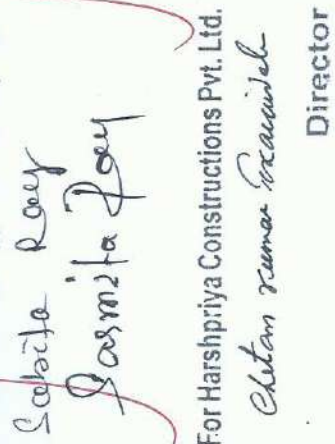 Sabita Roy
Sasmita Roy
For Harshpriya Constructions Pvt. Ltd.
Chetan Kumar
Director